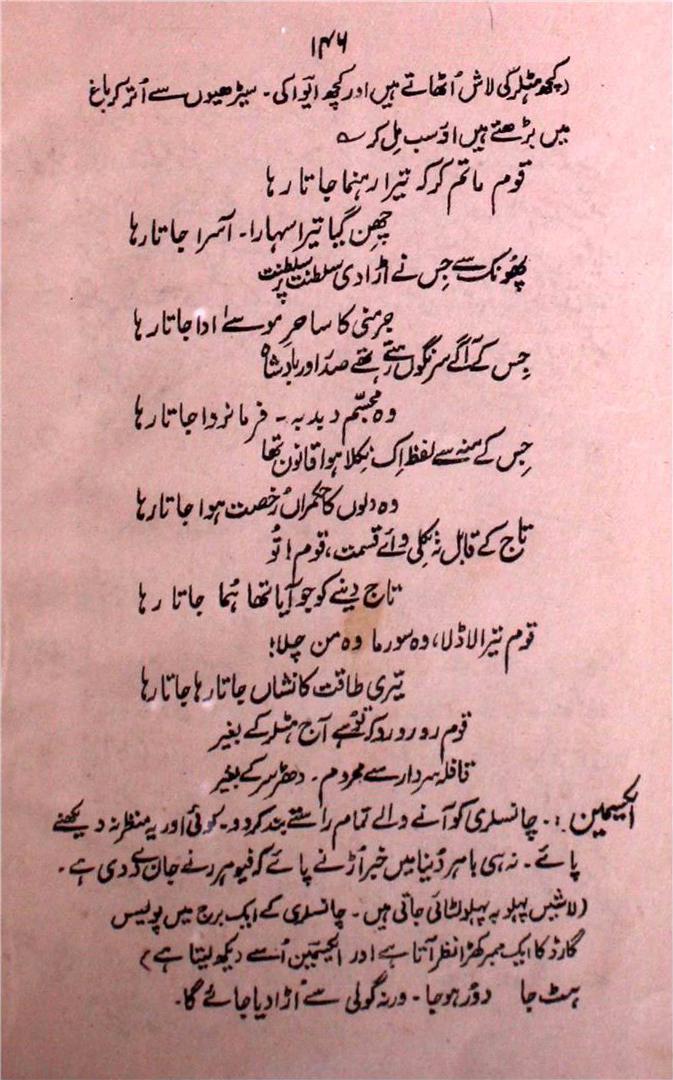 ۱۴۶
(کچھ ہٹلر کی لاش اُٹھاتے ہیں اور کچھ ایوا کی۔ سیڑھیوں سے اُتر کر باغ
میں بڑھتے ہیں اور سب مِل کر ؎
قوم ماتم کر کہ تیرا رہنما جاتا رہا
چھِن گیا تیرا سہارا۔ آسرا جاتا رہا
پھُونک سے جِس نے اُڑا دی سلطنت پر سلطنت
جرمنی کا ساحرِ موسےٰ ادا جاتا رہا
جِس کے آگے سرنگوں رہتے تھے صدر اور بادشاہ
وہ مجسّم دبدبہ۔ فرمانروا جاتا رہا
جِس کے منہ سے لفظ اِک نِکلا ہوا قانون تھا
وہ دلوں کا حکمراں رُخصت ہوا جاتا رہا
تاج کے قابل نہ نکلی وائے قسمت، قوم! تُو
تاج دینے کو جو آیا تھا ہُما جاتا رہا
قوم تیرا لاڈلا، وہ سورما وہ من چلا!
تیری طاقت کا نشاں جاتا رہا جاتا رہا
قوم رو رو رو کہ تُو ہے آج ہٹلر کے بغیر
قافلہ سردار سے محروم۔ دھڑ سر کے بغیر
اکسیمین :۔ چانسلری کو آنے والے تمام راستے بند کر دو۔ کوئی اور یہ منظر نہ دیکھنے
پائے۔ نہ ہی باہر دُنیا میں خبر اُڑنے پائے کہ فیوہرر نے جان دے دی ہے۔
(لاشیں پہلو بہ پہلو لٹائی جاتی ہیں۔ چانسلری کے ایک برج میں پولیس
گارڈ کا ایک ممبر کھڑا نظر آتا ہے اور اکسیمین اُسے دیکھ لیتا ہے)
ہٹ جا دُور ہو جا۔ ورنہ گولی سے اُڑا دیا جائے گا۔